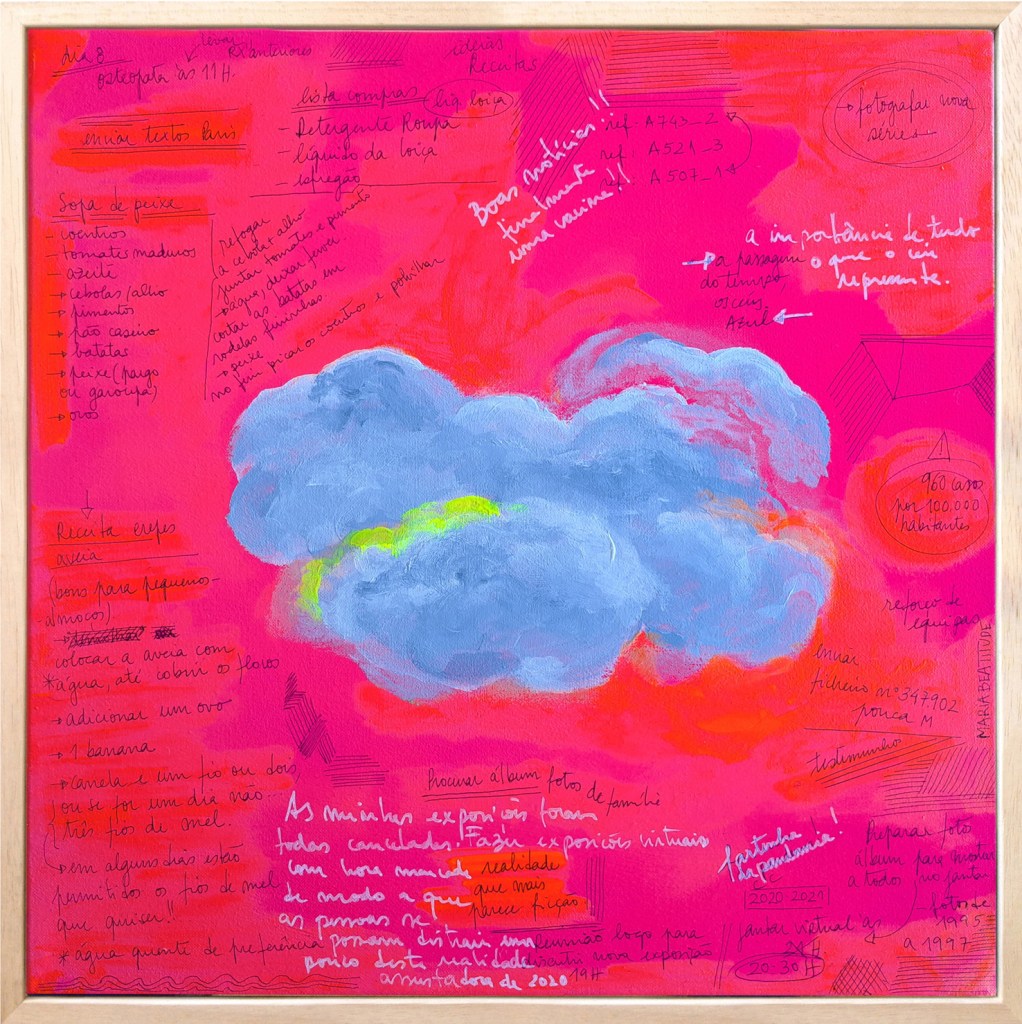 dia 8
levar RX anteriores
osteopata às 11H.
ideias
Receitas
enviar textos Paris
lista compras (liq. loiça)
- Detergente Roupa
- líquido da loiça
- esfregão
Boas notícias!!
finalmente
uma vacina!!
ref. A743_2
ref. A521_3
ref. A507_1
→ fotografar nova
séries
Sopa de peixe
- coentros
- tomates maduros
- azeite
→ cebolas/alho
→ pimentos
→ pão caseiro
→ batatas
→ peixe (pargo
ou garoupa)
→ ovos
refogar
a cebola + alho
juntar tomates e pimento
→ água, deixar ferver.
cortar as batatas em
rodelas fininhas.
→ peixe
no fim picar os coentros e polvilhar
a importância de tudo
o que o céu
represente.
→ a passagem
do tempo,
os céus
Azul ←
960 casos
por 100.000
habitantes
reforço de
equipas
MARIA BEATITUDE
Receita crepes
aveia
(bons para pequenos-
-almoços)
colocar a aveia com
* água, até cobrir os flocos
→ adicionar um ovo
→ 1 banana
→ canela e um fio ou dois,
ou se for um dia não...
três fios de mel.
→ em alguns dias estão
permitidos os fios de mel
que quiser!!
* água quente de preferência
Enviar
ficheiro nº 347.902
pouca M
testimunhos
Procurar álbum fotos de família
As minhas exposições foram
todas canceladas. Fazer exposições virtuais
com hora marcada
de modo a que
as pessoas se
possam distrair um
pouco desta realidade
assustadora de 2020
realidade
que mais
parece ficção
Reunião logo para
discutir nova exposição
19H
fartinha
da pandemia!
2020 2021
jantar virtual às
21 H
20.30 H
Preparar fotos
álbum para mostrar
a todos no jantar
fotos de
1995
a 1997